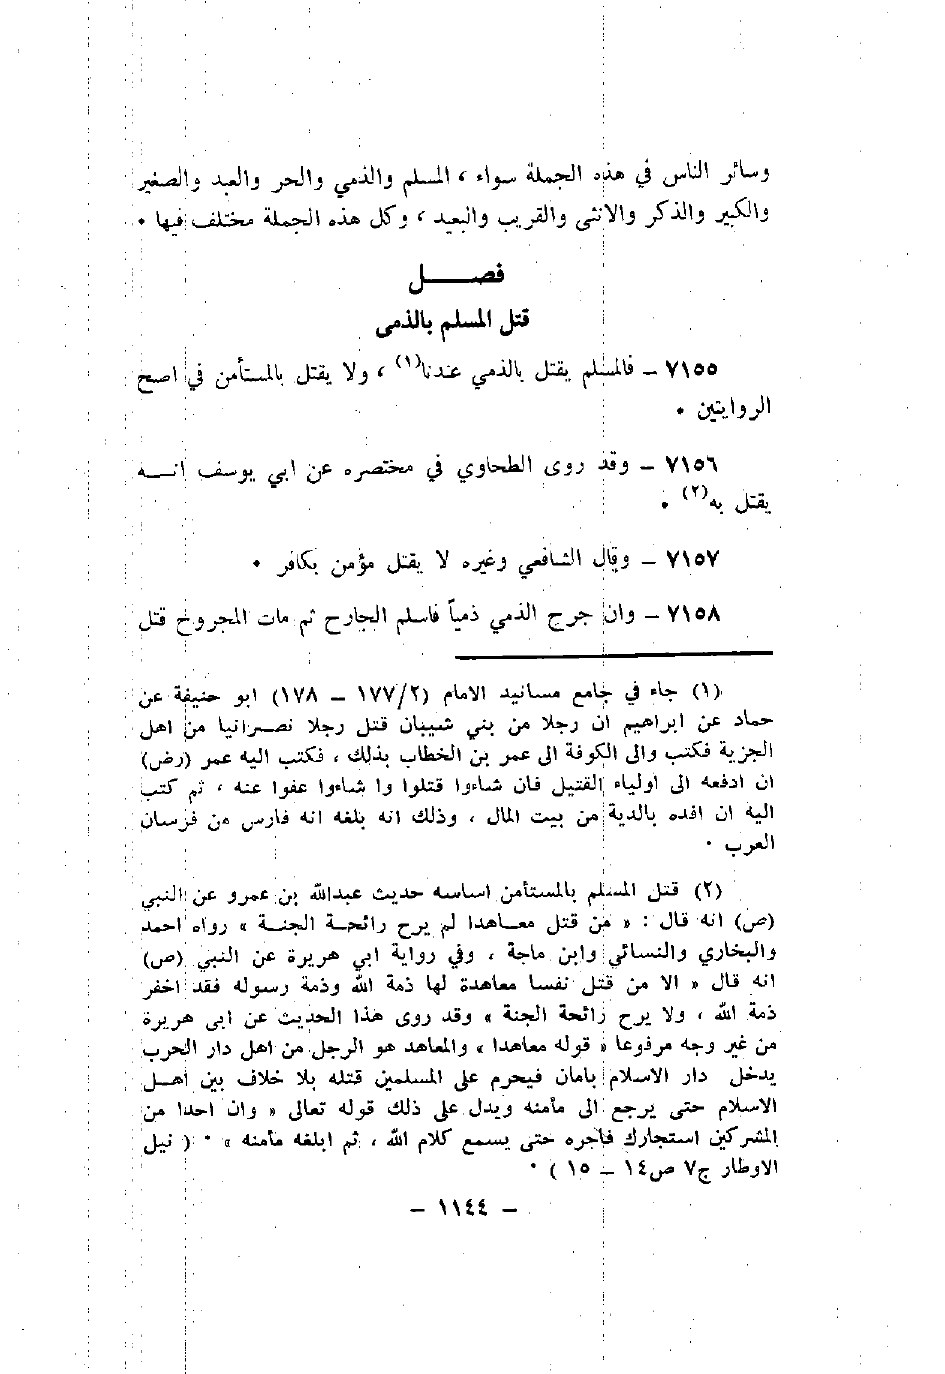 وسائر الناس في هذه الجملة سواء ، المسلم والذمي والحر والعبد والصغير
والكبير والذكر والانثى والقريب والبعيد ، وكل هذه الجملة مختلف فيها •
فصـــــل
قتل المسلم بالذمى
٧١٥٥ ـ فالمسلم يقتل بالذمي عندنا(١) ، ولا يقتل بالمستأمن في اصح
الروايتين •
٧١٥٦ ـ وقد روى الطحاوي في مختصره عن ابي يوسف انـــه
يقتل به(٢) •
٧١٥٧ ـ وقال الشافعي وغيره لا يقتل مؤمن بكافر •
٧١٥٨ ـ وان جرح الذمي ذمياً فاسلم الجارح ثم مات المجروح قتل
(١) جاء في جامع مسانيد الامام (١٧٧/٢ ـ ١٧٨) ابو حنيفة عن
حماد عن ابراهيم ان رجلا من بني شيبان قتل رجلا نصـرانيا من اهل
الجزية فكتب والى الكوفة الى عمر بن الخطاب بذلك ، فكتب اليه عمر (رض)
ان ادفعه الى اولياء القتيل فان شاءوا قتلوا وا شاءوا عفوا عنه ، ثم كتب
اليه ان افده بالدية من بيت المال ، وذلك انه بلغه انه فارس من فرسان
العرب •
(٢) قتل المسلم بالمستأمن اساسه حديث عبدالله بن عمرو عن النبي
(ص) انه قال : « من قتل معـاهدا لم يرح رائحـة الجنـة » رواه احمد
والبخاري والنسائي وابن ماجة ، وفي رواية ابي هريرة عن النبي (ص)
انه قال « الا من قتل نفسا معاهدة لها ذمة الله وذمة رسوله فقد اخفر
ذمة الله ، ولا يرح رائحة الجنة » وقد روى هذا الحديث عن ابى هريرة
من غير وجه مرفوعا « قوله معاهدا » والمعاهد هو الرجل من اهل دار الحرب
يدخل دار الاسلام بامان فيحرم على المسلمين قتله بلا خلاف بين اهـل
الاسلام حتى يرجع الى مأمنه ويدل على ذلك قوله تعالى « وان احدا من
المشركين استجارك فأجره حتى يسمع كلام الله ، ثم ابلغه مأمنه » • ( نيل
الاوطار ج٧ ص١٤ ـ ١٥ ) •
ـ ١١٤٤ ـ